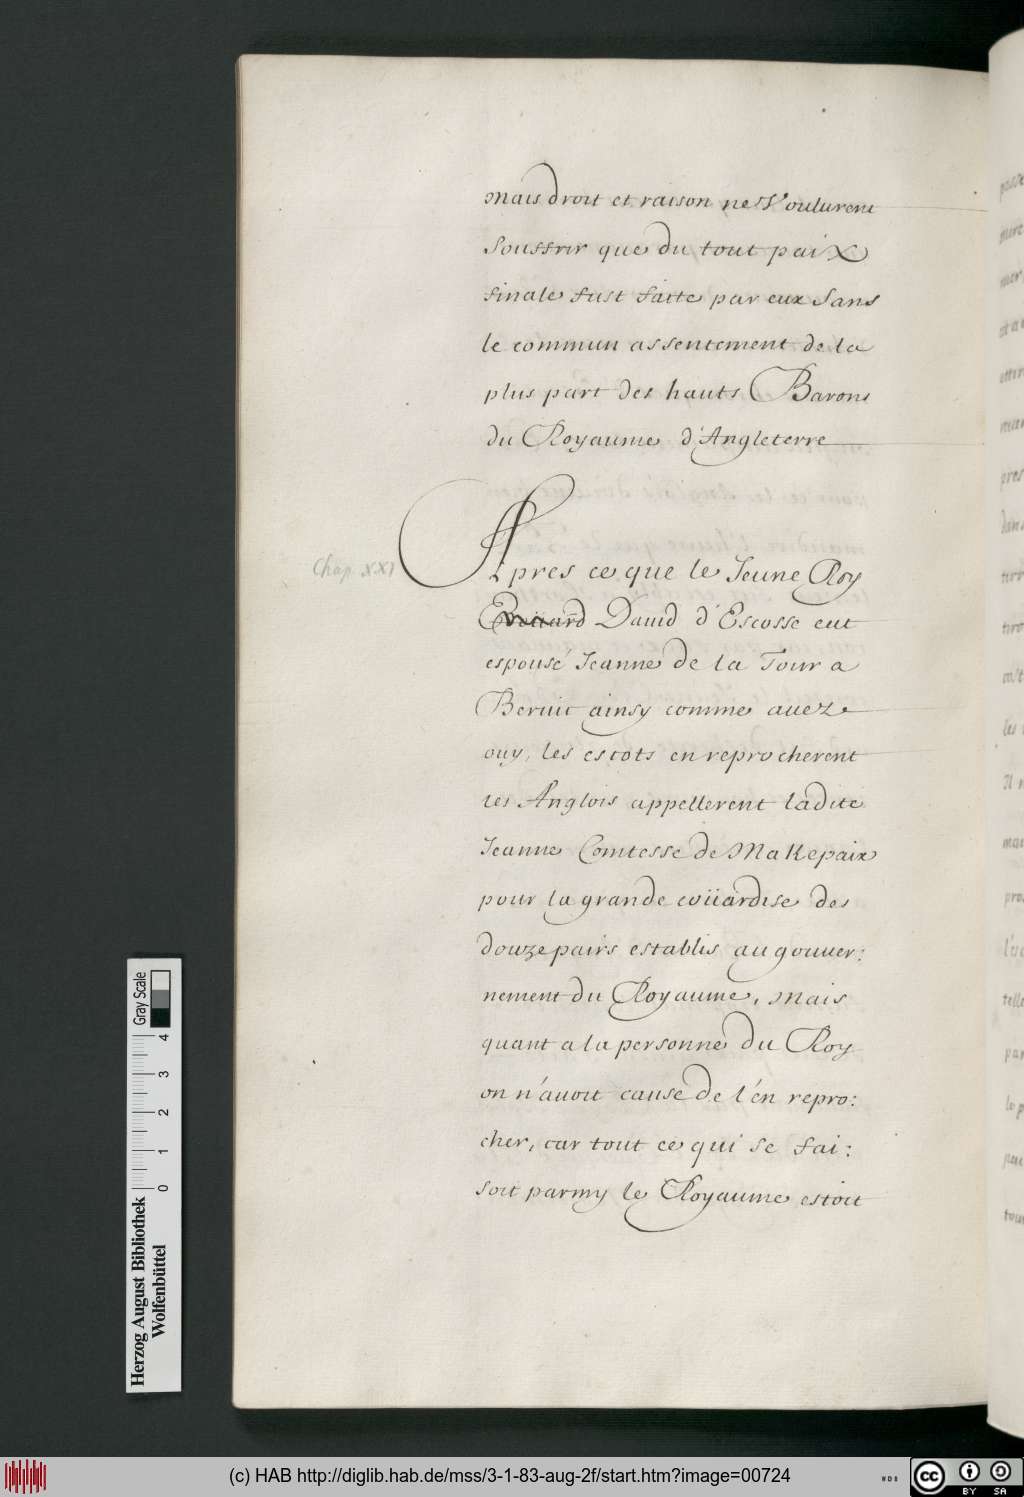 mais droit et raison ne Voulurent
Souffrir que du tout paix
finale fust faite par eux Sans
le commun assentement de la
plus part des hauts Barons
du Royaume d'Angleterre
Chap XXI
Apres ce que le Jeune Roy
Edouard Dauid d'Escosse eut
espousé Jeanne de la Tour a
Beruic ainsy comme auez
ouy, les escots en reprocherent
les Anglois appellerent ladite
Jeanne Comtesse de Makepaix
pour la grande coüardise des
douze pairs establis au gouuer:
nement du Royaume, mais
quant a la personne du Roy
on n'auoit cause de l'en repro:
cher, car tout ce qui se fai:
soit parmy le Royaume estoit
Herzog August Bibliothek
Wolfenbüttel
0 1 2 3 4
Gray Scale
(c) HAB http://diglib.hab.de/mss/3-1-83-aug-2f/start.htm?image=00724
WDB
cc BY SA